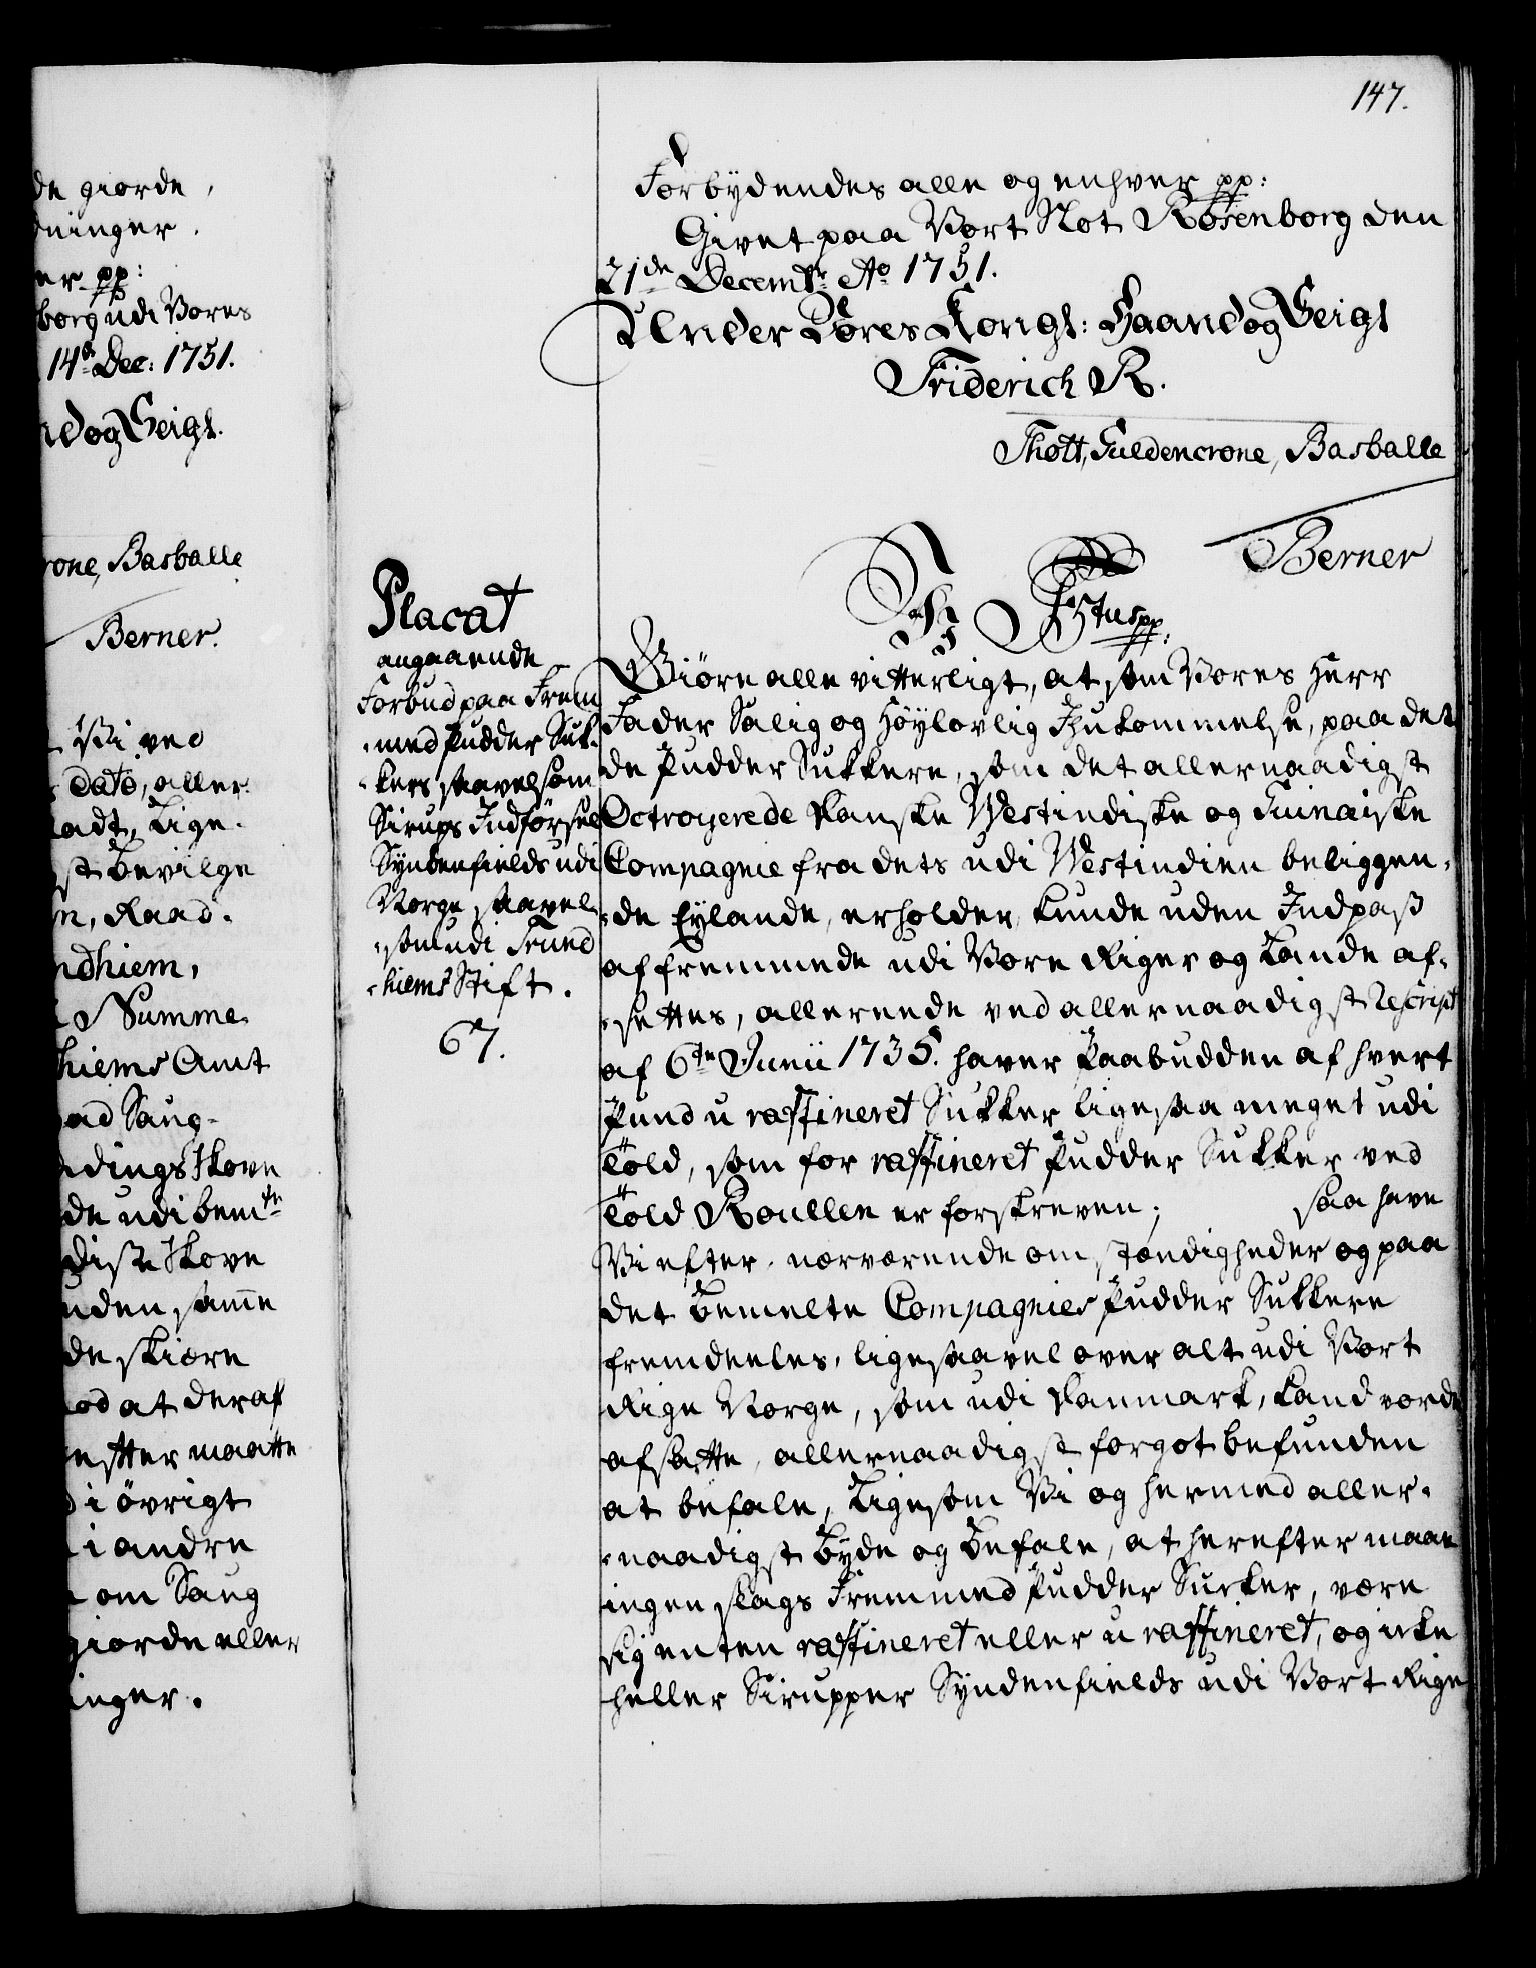 147.
de giorde,
dninger.
er pp:
borg udi Vores
14de Dec: 1751.
nd og Seigl.
rone, Basballe
Berner.
Vi ved
dato, aller
ladt, Lige-
st bevilge
n, Raad-
ndhiem,
Summe
hiems Amt
ad Saug-
dings Skove
de udi bemte
diste Skove
uden, samme
de skiære
od at deraf
efter maatte
i øvrigt
i andre
om Saug
giorde eller
inger.
Forbydendes alle og enhver pp:
Givet paa Vort Slot Rosenborg den
21de Decembr: Ao 1751.
Under Vores Kongl: Haand og Seigl
Friderich R.
Thott, Guldencrone, Basballe
Berner
Placat
angaaende
Forbud paa Frem-
-med Pudder Suk-
-kers saavelsom
Sirups Indførsel
Syndenfields udi
Norge, saavel-
-som udi Trund-
-hiems Stift.
67.
F 5tus pp:
Giøre alle vitterligt, at som Vores Herr
Fader Salig og Høylovlig Ihukommelse, paa det
de Pudder Sukkere, som det allernaadigst
Octroyerede Danske Westindiske og Guinaiske
Compagnie fra dets udi Westindien beliggen-
-de Eylande, erholder, kunde uden Indpaß
af fremmede udi Vore Riger og Lande af-
-settes, allerede ved allernaadigst Rescript
af 6te Junii 1735. haver Paabudden af hvert
Pund u raffineret Sukker ligesaa meget udi
Told, som for raffineret Pudder Sukker ved
Told Roullen er forskreven; saa have
Vi efter nærværende omstændigheder og paa
det bemelte Compagnies Pudder Sukkere
fremdeeles, ligesaavel over alt udi Vort
Rige Norge, som udi Danmark, kand vorde
afsatte, allernaadigst forgot befunden
at befale, Ligesom Vi og hermed aller-
-naadigst byde og befale, at herefter maae
ingen slags Fremmed Pudder Sucker, være
sig enten raffineret eller u raffineret, og icke
heller Sirupper Syndenfields udi Vort Rige